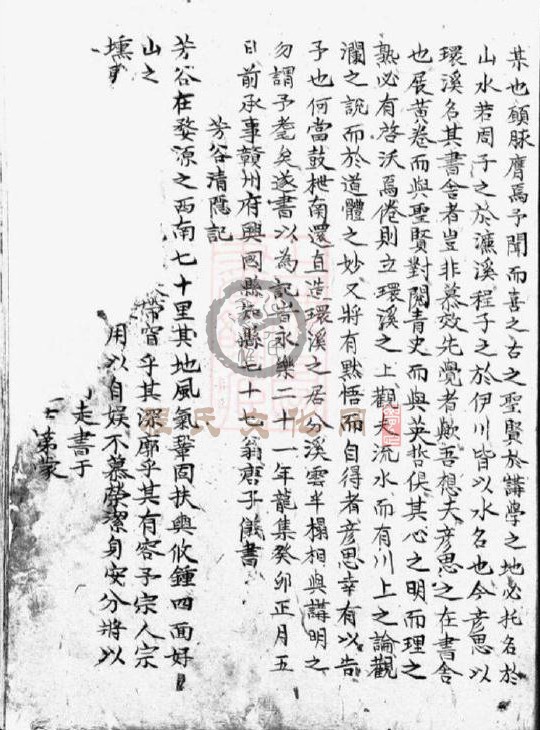 某也顧脉膺焉予聞而喜之古之聖賢於講學之地必托名於
山水若周子之於濂溪程子之於伊川皆以水名也今彦思以
環溪名其書舎者豈非慕效先覺者歟吾想夫彦思之在書舎
也展黄卷而與聖賢對閲青史而與英哲俟其心之明而理之
熟必有啓沃焉倦則立環溪之上觀夫流水而有川上之論觀
瀾之說而於道體之妙又將有黙悟而自得者彦思幸有以告
予也何當鼓枻南還直造環溪之居分溪雲半榻相與講明之
勿謂予耄矣遂書以為記旹永樂二十一年龍集癸卯正月五
日前承事贛州府興國縣知縣七十七翁唐子儀書
芳谷清隠記
芳谷在婺源之西南七十里其地風氣鞏固扶輿攸鍾四面好
山之
窅乎其深廓乎其有容予宗人宗
壎
用以自娱不慕榮潔身安分將以
走書于
弟蒙